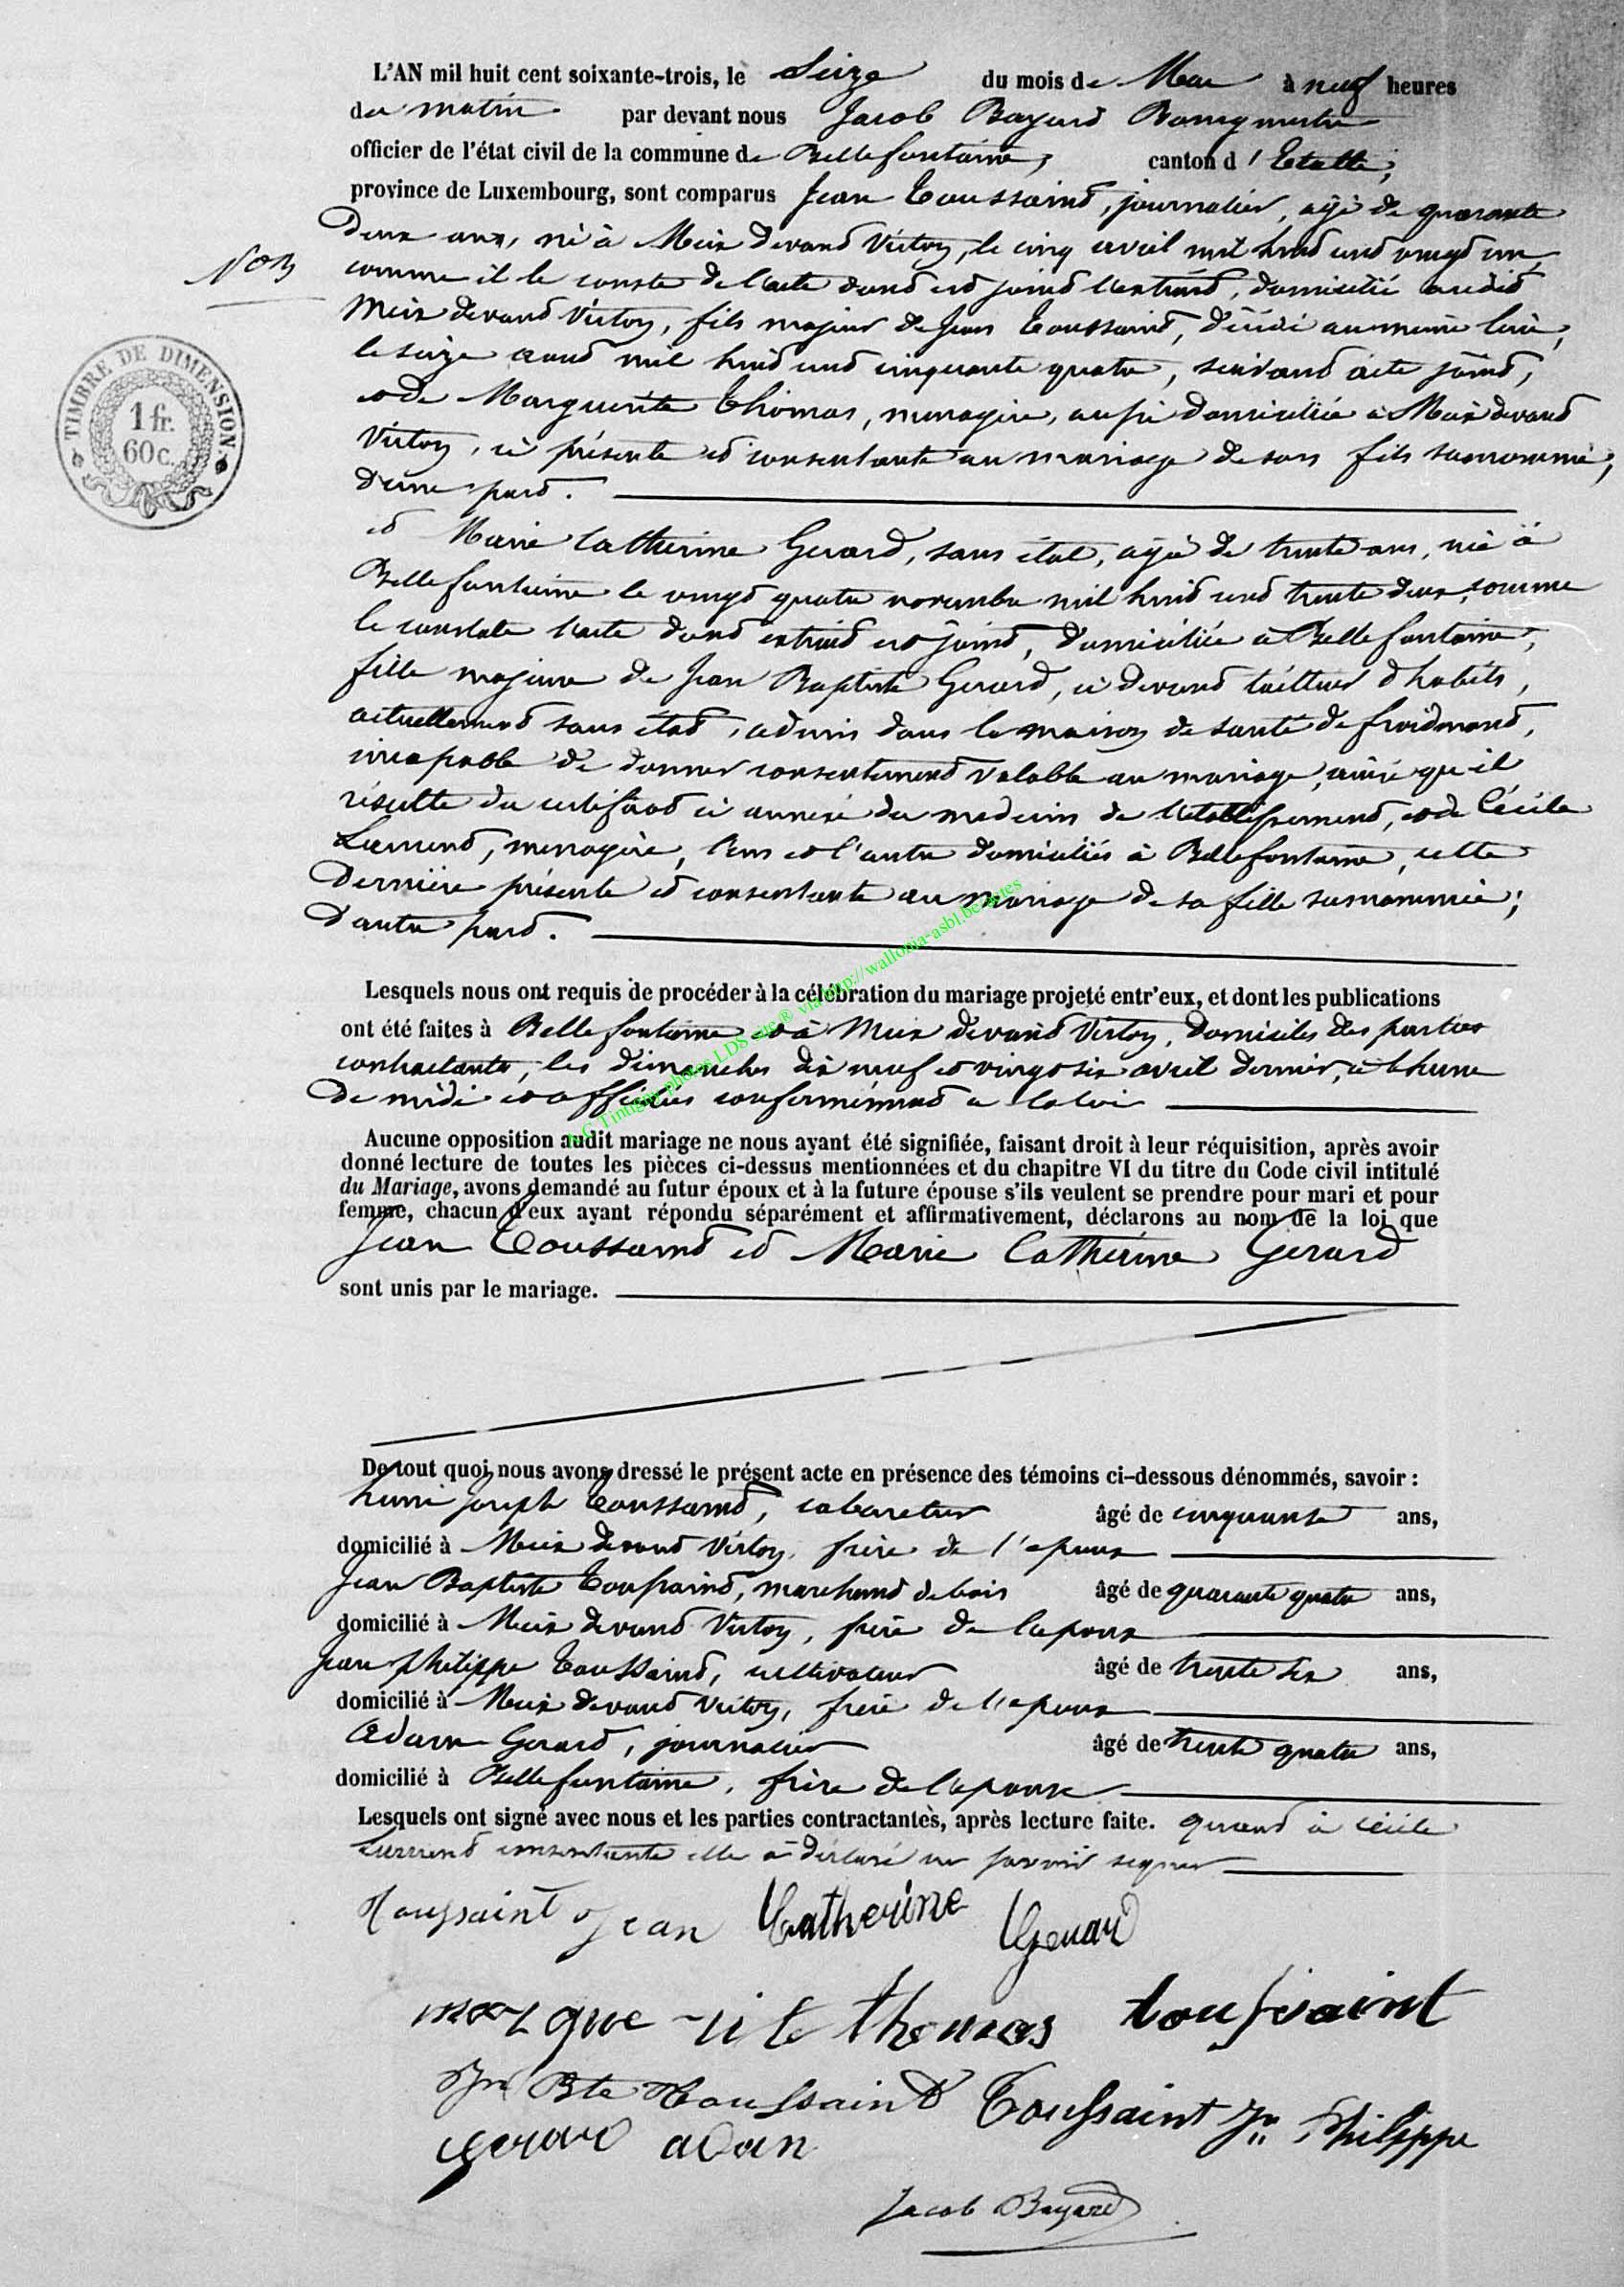 L'AN mil huit cent soixante-trois, le Seize du mois de Mai à neuf heures
du matin par devant nous Jacob Bayard Bourgmestre
officier de l'état civil de la commune de Bellefontaine, canton d'Etalle,
province de Luxembourg, sont comparus Jean Toussaint, journalier, agé de quarante
deux ans, né à Meix devant Virton, le cinq avril mil huit cent vingt un,
comme il le conste de l'acte dont est joint l'extrait, domicilié audit
Meix devant Virton, fils majeur de Jean Toussaint, décédé au même lieu,
le seize aout mil huit cent cinquante quatre, suivant acte joint,
et de Marguerite Thomas, menagère, aussi domiciliée à Meix devant
Virton, ici présente et consentante au mariage de son fils susnommé,
d'une part.
N° 3
TIMBRE DE DIMENSION.
1 fr.
60 c.
et Marie Catherine Gerard, sans état, agée de trente ans, née à
Bellefontaine le vingt quatre novembre mil huit cent trente deux, comme
le constate l'acte dont extrait est joint, domiciliée à Bellefontaine,
fille majeure de Jean Baptiste Gerard, ci devant tailleur d'habits,
actuellement sans état, admis dans la maison de santé de froidmont,
incapable de donner consentement valable au mariage, ainsi qu'il
résulte du certificat ci annexé du medecin de l'etablissement, et de Cécile
menagère, l'un et l'autre domiciliés à Bellefontaine, cette
dernière présente et consentante au mariage de sa fille susnommée;
d'autre part.
Lesquels nous ont requis de procéder à la célébration du mariage projeté entr'eux, et dont les publications
ont été faites à Bellefontaine et à Meix devant Virton, domiciles des parties
contractantes, les dimanches dix neuf et vingt six avril dernier, à l'heure
de midi et affichées conformément à la loi
Aucune opposition audit mariage ne nous ayant été signifiée, faisant droit à leur réquisition, après avoir
donné lecture de toutes les pièces ci-dessus mentionnées et du chapitre VI du titre du Code civil intitulé
du Mariage, avons demandé au futur époux et à la future épouse s'ils veulent se prendre pour mari et pour
femme, chacun d'eux ayant répondu séparément et affirmativement, déclarons au nom de la loi que
Jean Toussaint et Marie Catherine Gerard
sont unis par le mariage.
De tout quoi nous avons dressé le présent acte en présence des témoins ci-dessous dénommés, savoir :
henri joseph Toussaint, cabaretier âgé de cinquante ans,
domicilié à Meix devant Virton, frère de l'epoux
Jean Baptiste Toussaint, marchand de bois âgé de quarante quatre ans,
domicilié à Meix devant Virton, frère de l'epoux
Jean philippe Toussaint, cultivateur âgé de trente six ans,
domicilié à Meix devant Virton, frère de l'epoux
Adam Gerard, journalier âgé de trente quatre ans,
domicilié à Bellefontaine, frère de l'epouse
Lesquels ont signé avec nous et les parties contractantes, après lecture faite. quand à Cécile
consentante elle a déclaré ne savoir signer
Toussaint Jean Catherine Gerard
marguerite thomas toussaint
Jn Bte Toussaint Toussaint Jn Philippe
gerard adan
Jacob Bayard
A.C Tintigny photos LDS site ® via http://wallonia-asbl.be/actes